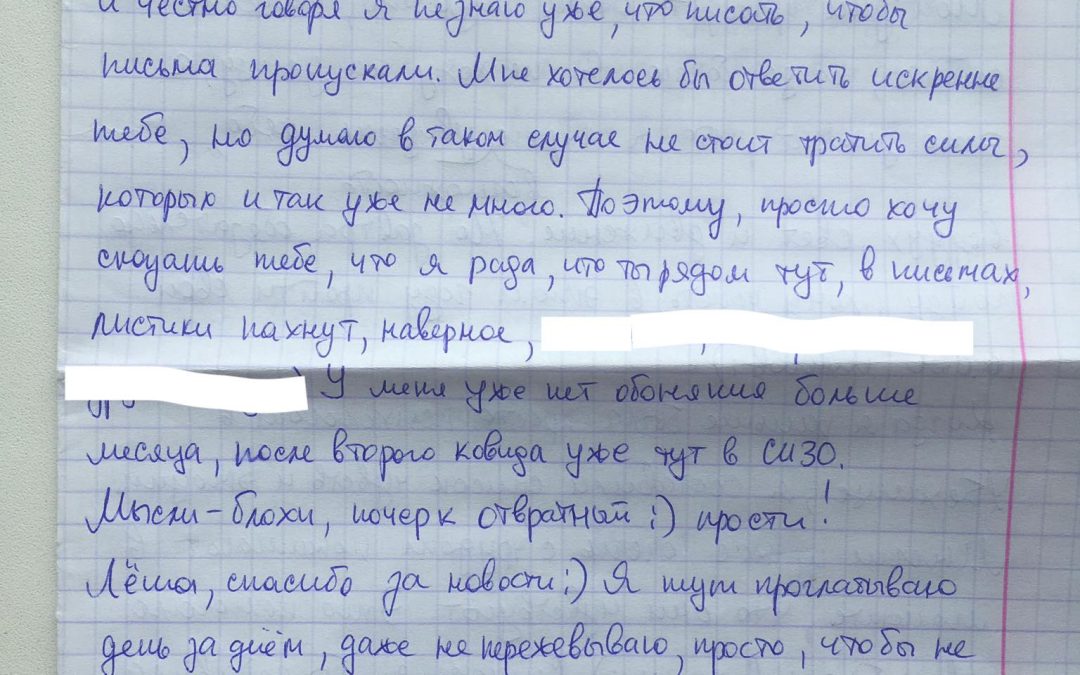 и честно говоря я не знаю уже, что писать, чтобы
письма пропускали. Мне хотелось бы ответить искренне
тебе, но думаю в таком случае не стоит тратить силы,
которых и так уже не много. Поэтому, просто хочу
сказать тебе, что я рада, что ты рядом тут, в письмах,
листики пахнут, наверное,
У меня уже нет обоняния больше
месяца, после второго ковида уже тут в СИЗО.
Мысли-блохи, почерк отвратный :) прости!
Лёша, спасибо за новости :) Я тут проглатываю
день за днём, даже не пережевываю, просто, чтобы не